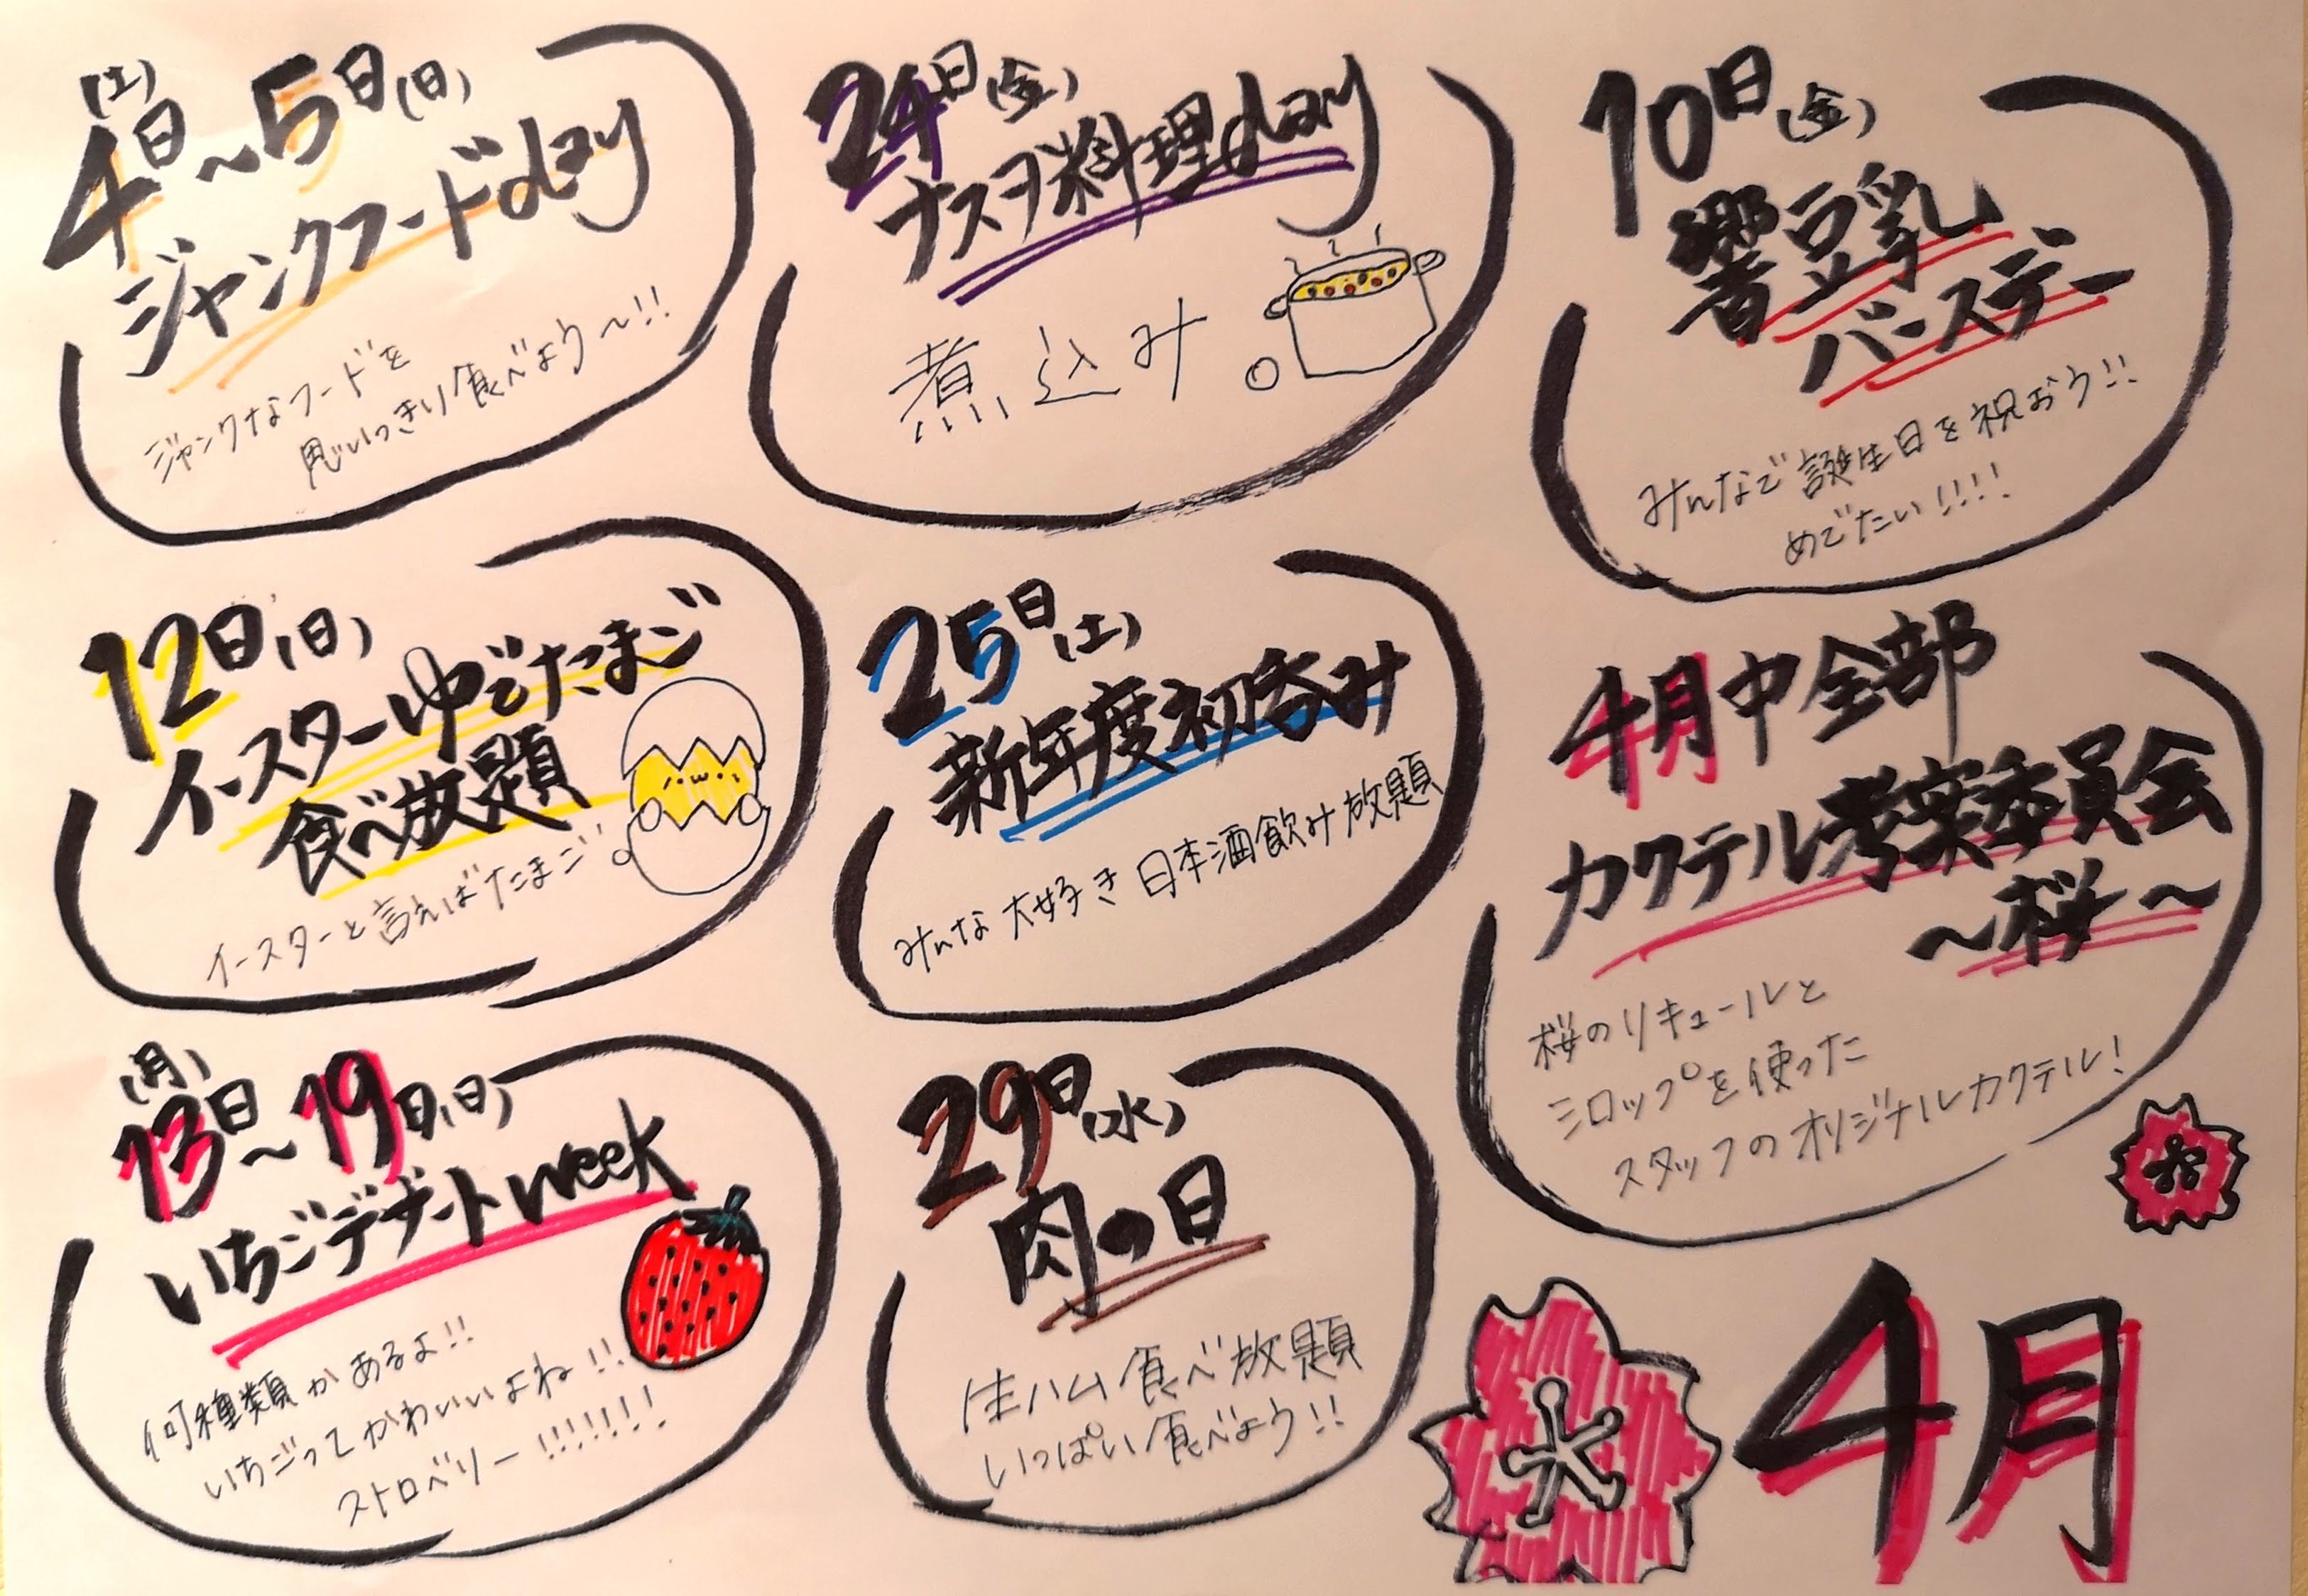 4日(土)〜5日(日)
ジャンクフードday
ジャンクなフードを
思いっきり食べよう〜!!
24日(金)
ナスヲ料理day
煮込み
10日(金)
響豆乳
バースデー
みんなで誕生日を祝おう!!
めでたい!!!!
12日(日)
イースターゆでたまご
食べ放題
イースターと言えばたまご
25日(土)
新年度初呑み
みんな大好き日本酒飲み放題
4月中全部
カクテル考案委員会
〜桜〜
桜のリキュールと
シロップを使った
スタッフのオリジナルカクテル!
13日(月)〜19日(日)
いちごデザートweek
何種類かあるよ!!
いちごってかわいいよね!!
ストロベリー!!!!!!!
29日(水)
肉の日
生ハム食べ放題
いっぱい食べよう!!
4月